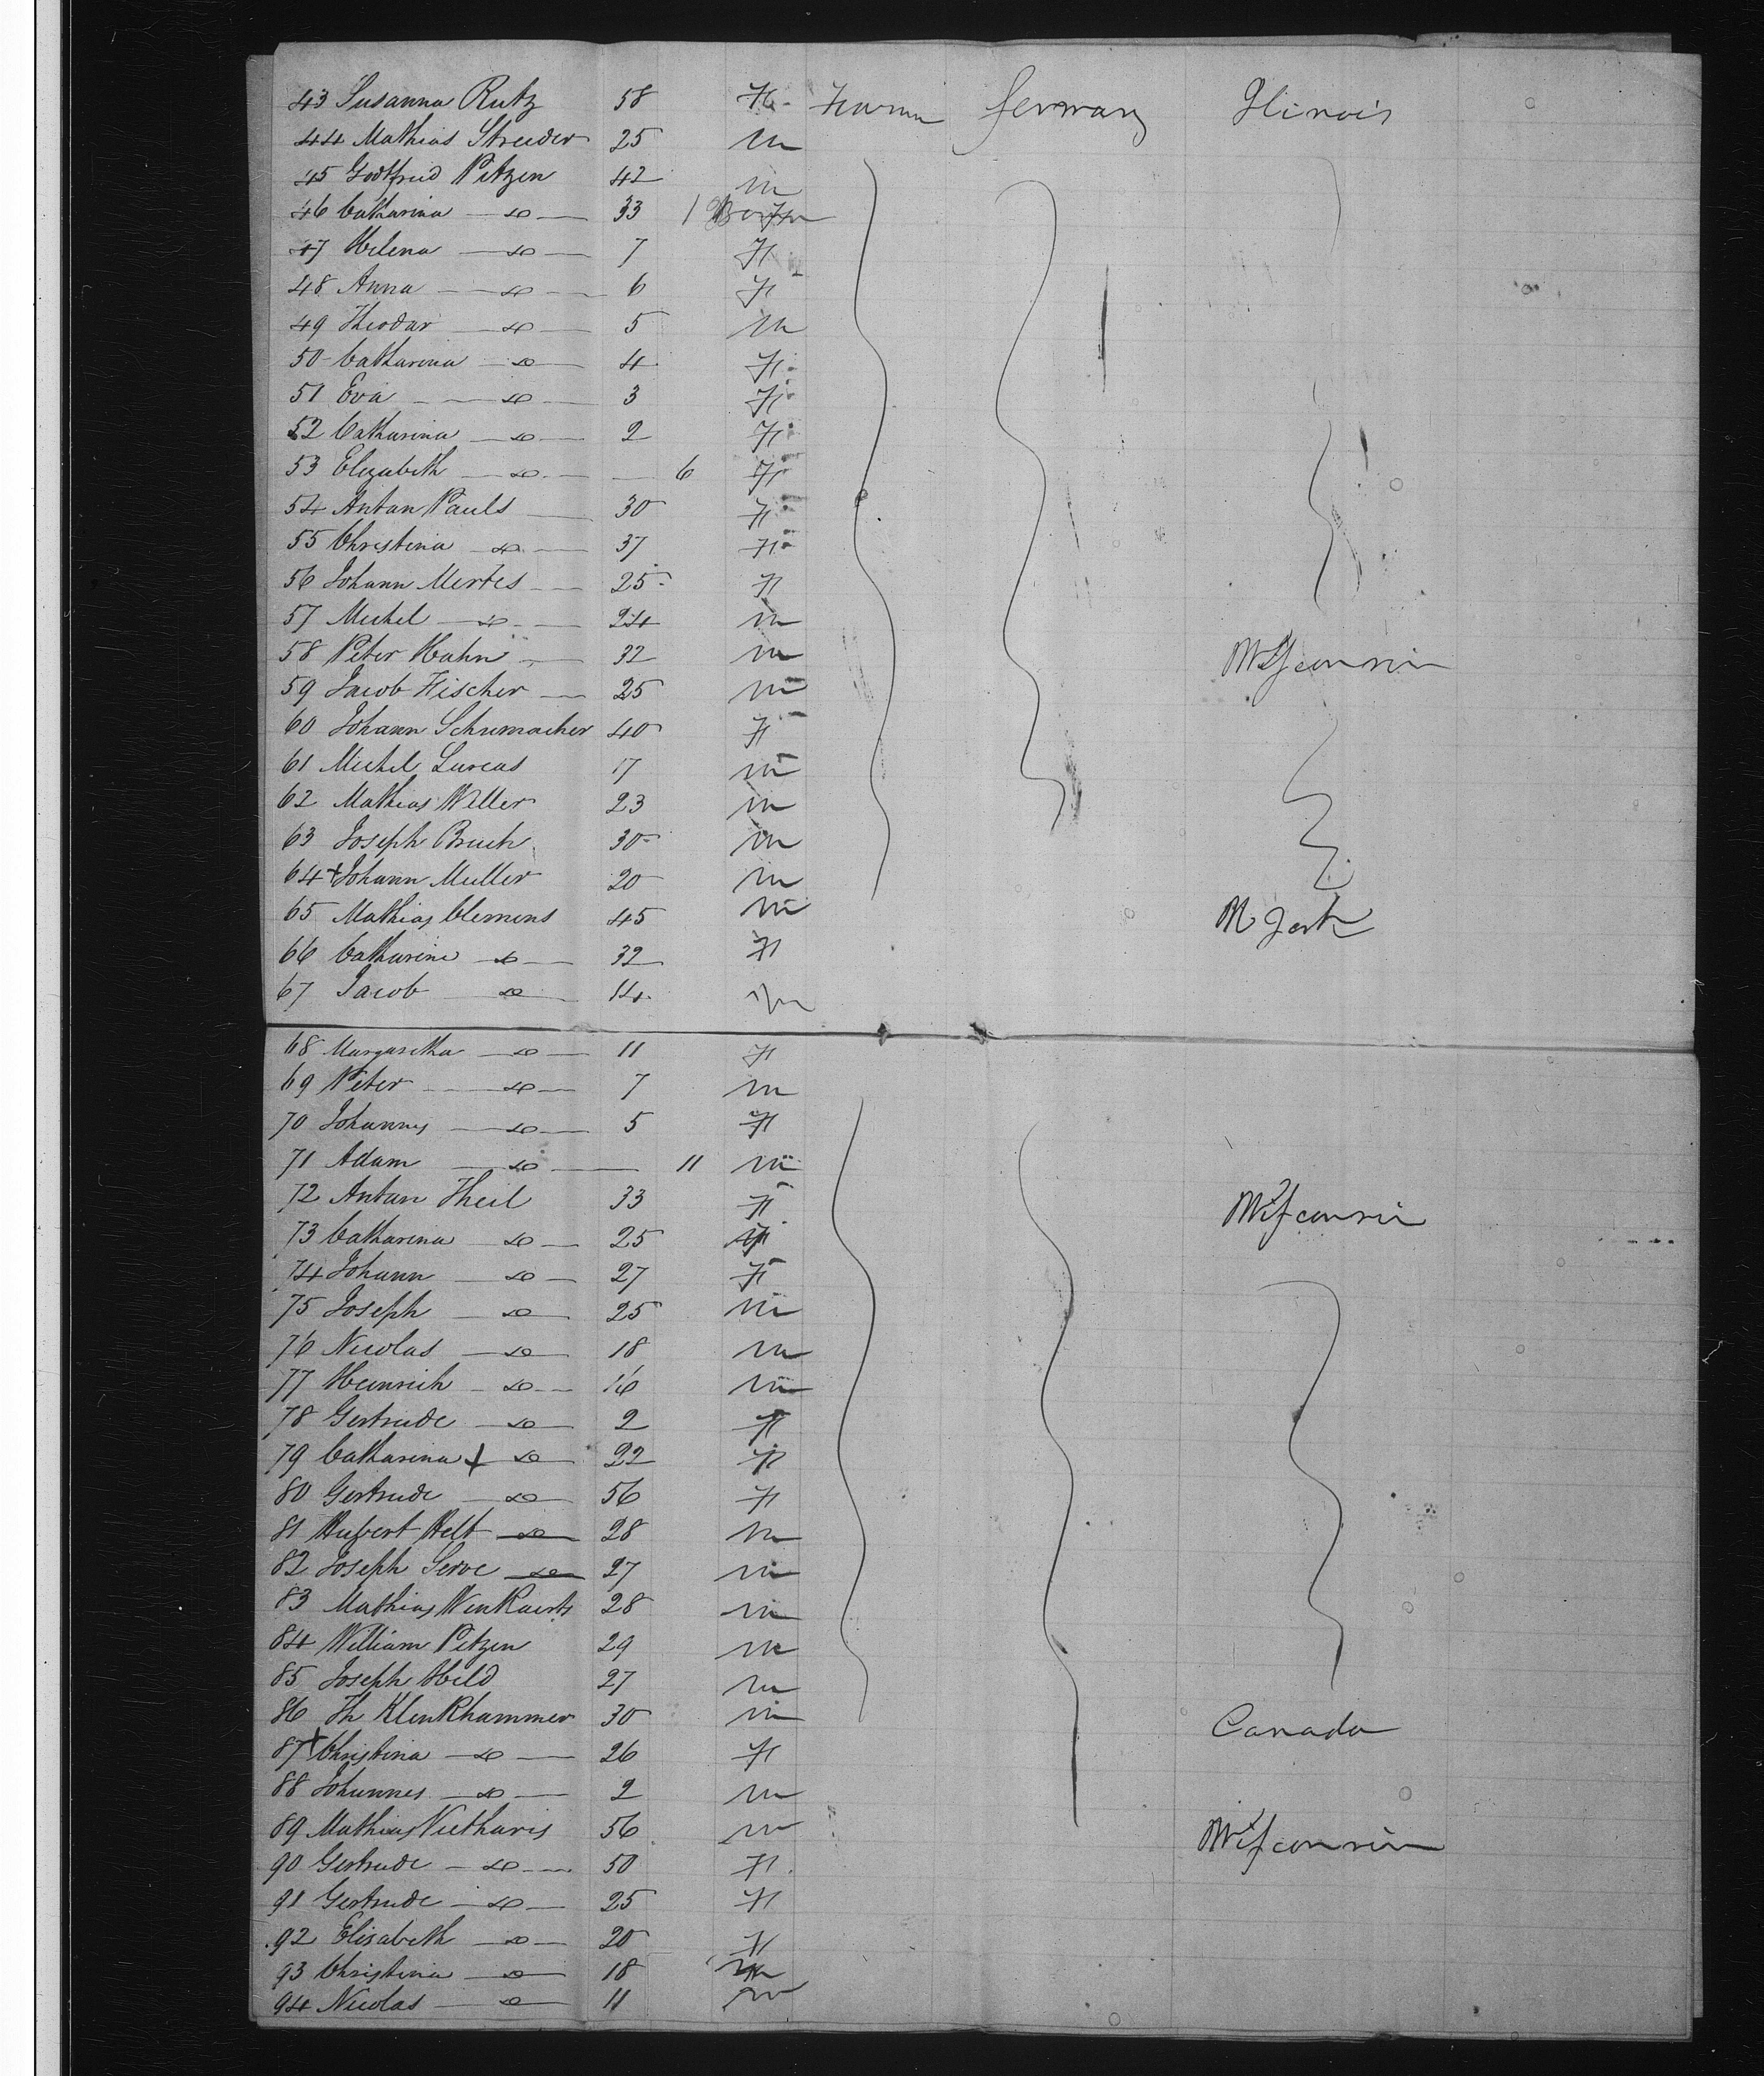 43 Susanna Rutz 58 F Farm Germany Ilinois
44 Mathias Streuder 25 m
45 Godtfried Pitzen 42 m
46 Catharina do 33 F
47 Helena do 7 F
48 Anna do 6 F
49 Theodar do 5 m
50 Catharina do 4 F
51 Eva do 3 F
52 Catharina do 2 F
53 Elizabeth do 6 F
54 Antan Pauls 30 F
55 Christina do 37 F
56 Johann Mertes 25 F
57 Michel do 24 m
58 Peter Hahn 32 m Wisconsin
59 Jacob Fischer 25 m
60 Johann Schumacher 40 F
61 Michel Lurcas 17 m
62 Mathias Willer 23 m
63 Joseph Bruch 30 m
64 + Johann Muller 20 m
65 Mathias Clemens 45 m N York
66 Catharine do 32 F
67 Jacob do 14 m
68 Margaretha do 11 F
69 Peter do 7 m
70 Johannes do 5 F
71 Adam do 11 m
72 Antan Theil 33 F Wisconsin
73 Catharina do 25 F
74 Johann do 27 F
75 Joseph do 25 m
76 Nicolas do 18 m
77 Heinrich do 16 m
78 Gertrude do 2 F
79 Catharina + do 22 F
80 Gertrude do 56 F
81 Hubert Helt do 28 m
82 Joseph Serve do 27 m
83 Mathias 28 m
84 William Pitzen 29 m
85 Joseph Held 27 m
86 Th Klenkhammer 30 m Canada
87 + Christina do 26 F
88 Johannes do 2 m
89 Mathias Vietharis 56 m Wisconsin
90 Gertrude do 50 F
91 Gertrude do 25 F
92 Elisabeth do 20 F
93 Christina do 18
94 Nicolas do 11 m